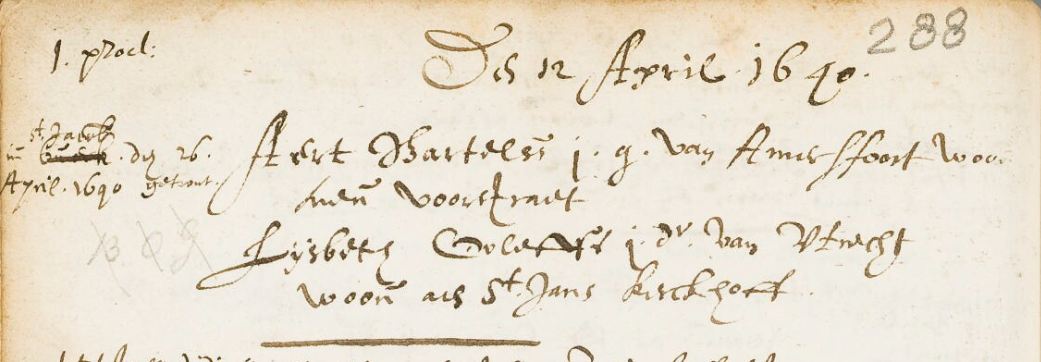 288
1. procl:
Des 12 April. 1640.
st Jacob
in buerk. den 26.
April. 1640 getrout.
Aert Bartelss j. g. van Amersfoort woon
nen voorstraet
Lijsbeth Goleffs j dr. van Utrecht
woon aen St. Jans kerckhoff.